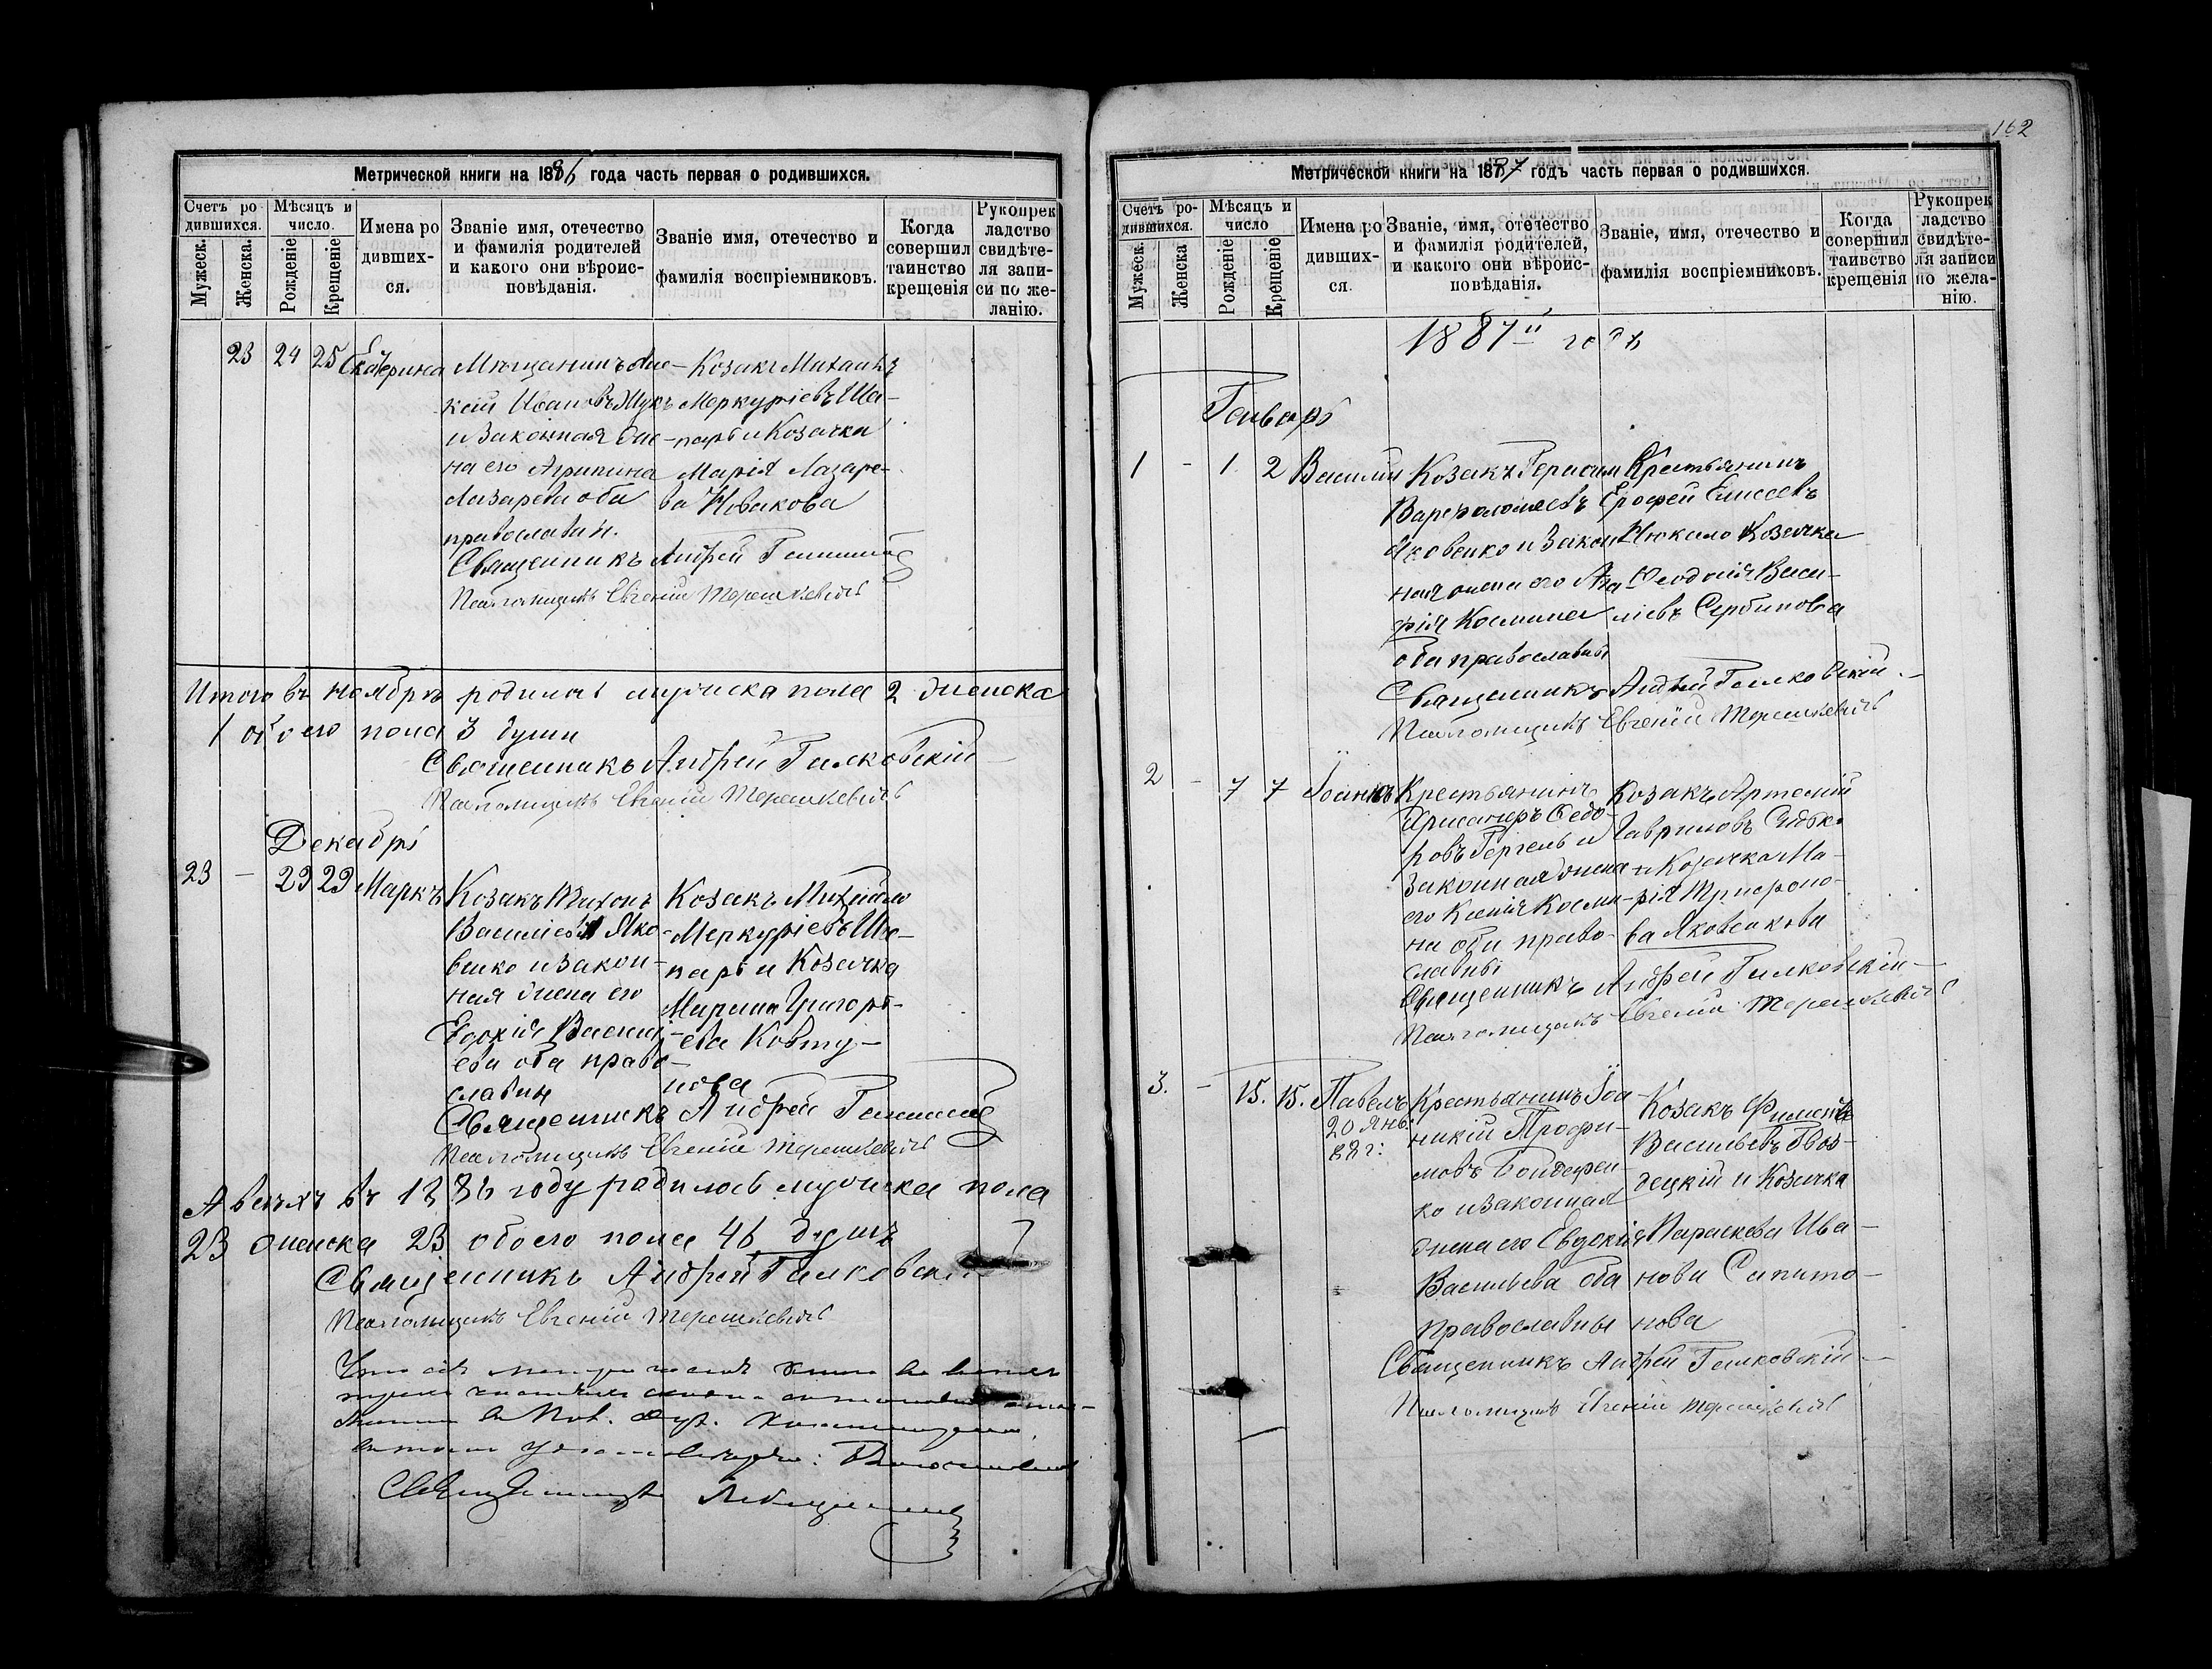 Метрической книги на 1886 года часть первая о родившихся.
Счетъ ро
дившихся.
Мужеск.
Женска.
Мѣсяцъ и
число.
Рожденіе
Крещеніе
Имена ро
дивших-
ся.
Званіе имя, отечество
и фамилія родителей
и какого они вѣроис-
повѣданія.
Званіе имя, отечество и
фамилія воспріемниковъ.
Когда
совершил
таинство
крещенія
Рукопрек
ладство
свидѣте-
ля запи-
си по же-
ланію.
23 24 25 Екатерина
Мѣщанинъ Але-
кѣй Ивановъ Жукъ
и законная же-
на его Агрипина
Лазарева оба
православн.
Козакъ Михаилъ
Меркуріевъ Ша-
паръ и Козачка
Марія Лазаре-
ва Новакова
Священникъ Андрей
Псаломщикъ Евгеній Терешкевичъ
Итого въ ноябрѣ родилось мужска пола 2 женска
1 обоего пола 3 души
Священникъ Андрей Галковскій
Псаломщикъ Евгеній Терешкевичъ
Декабрь
23 - 29 29 Маркъ
Козакъ Тихонъ
Василіевъ Яко-
венко и закон-
ная жена его
Евдокія Василі-
ева оба право-
славны
Козакъ Михаилъ
Меркуріевъ Ша-
паръ и Козачка
Марина Григорь-
ева Ковту-
нова
Священникъ Андрей
Псаломщикъ Евгеній Терешкевичъ
А всѣхъ въ 1886 году родилось мужска пола
23 женска 23 обоего пола 46 душъ
Священникъ Андрей Галковскій
Псаломщикъ Евгеній Терешкевичъ
Священникъ
162
Метрической книги на 1887 годъ часть первая о родившихся.
Счетъ ро-
дившихся.
Мужеск.
Женска
Мѣсяцъ и
число
Рожденіе
Крещеніе
Имена ро
дивших-
ся.
Званіе, имя, отечество
и фамилія родителей,
и какого они вѣроис-
повѣданія.
Званіе, имя, отечество и
фамилія воспріемниковъ.
Когда
совершил
таивство
крещенія
Рукопрек
ладство
свидѣте-
ля записи
по жела-
нію.
1887й годъ
Генварь
1 - 1 2 Василий
Козакъ Герасим
Варфоломеевъ
Яковенко и закон
ная жена его Ага
фія Космина
оба православны
Крестьянинъ
Ерофей Елисеевъ
Козачка
Феодосія Васи-
ліевъ Сербинова
Священникъ Андрей Галковскій
Псаломщикъ Евгеній Терешкевичъ
2 - 7 7 Іоаннъ
Крестьянинъ
Ѳедо-
ровъ Гергель и
законная жена
его Ксенія Косми-
на оба право-
славны
Козакъ Артемій
Гавриловъ
и Козачка Ма-
рія Трифоно-
ва Яковенкова
Священникъ Андрей Галковскій
Псаломщикъ Евгеній Терешкевичъ
3. - 15. 15. Павелъ
20 Янв.
88 г:
Крестьянинъ Іоа-
никій Трофи-
мовъ
ко и законная
жена его Евдокія
Васильева оба
православны
Козакъ
Васильевъ Гвоз-
децкій и Козачка
Параскева Ива-
нова Сапито-
нова
Священникъ Андрей Галковскій
Псаломщикъ Евгеній Терешкевичъ